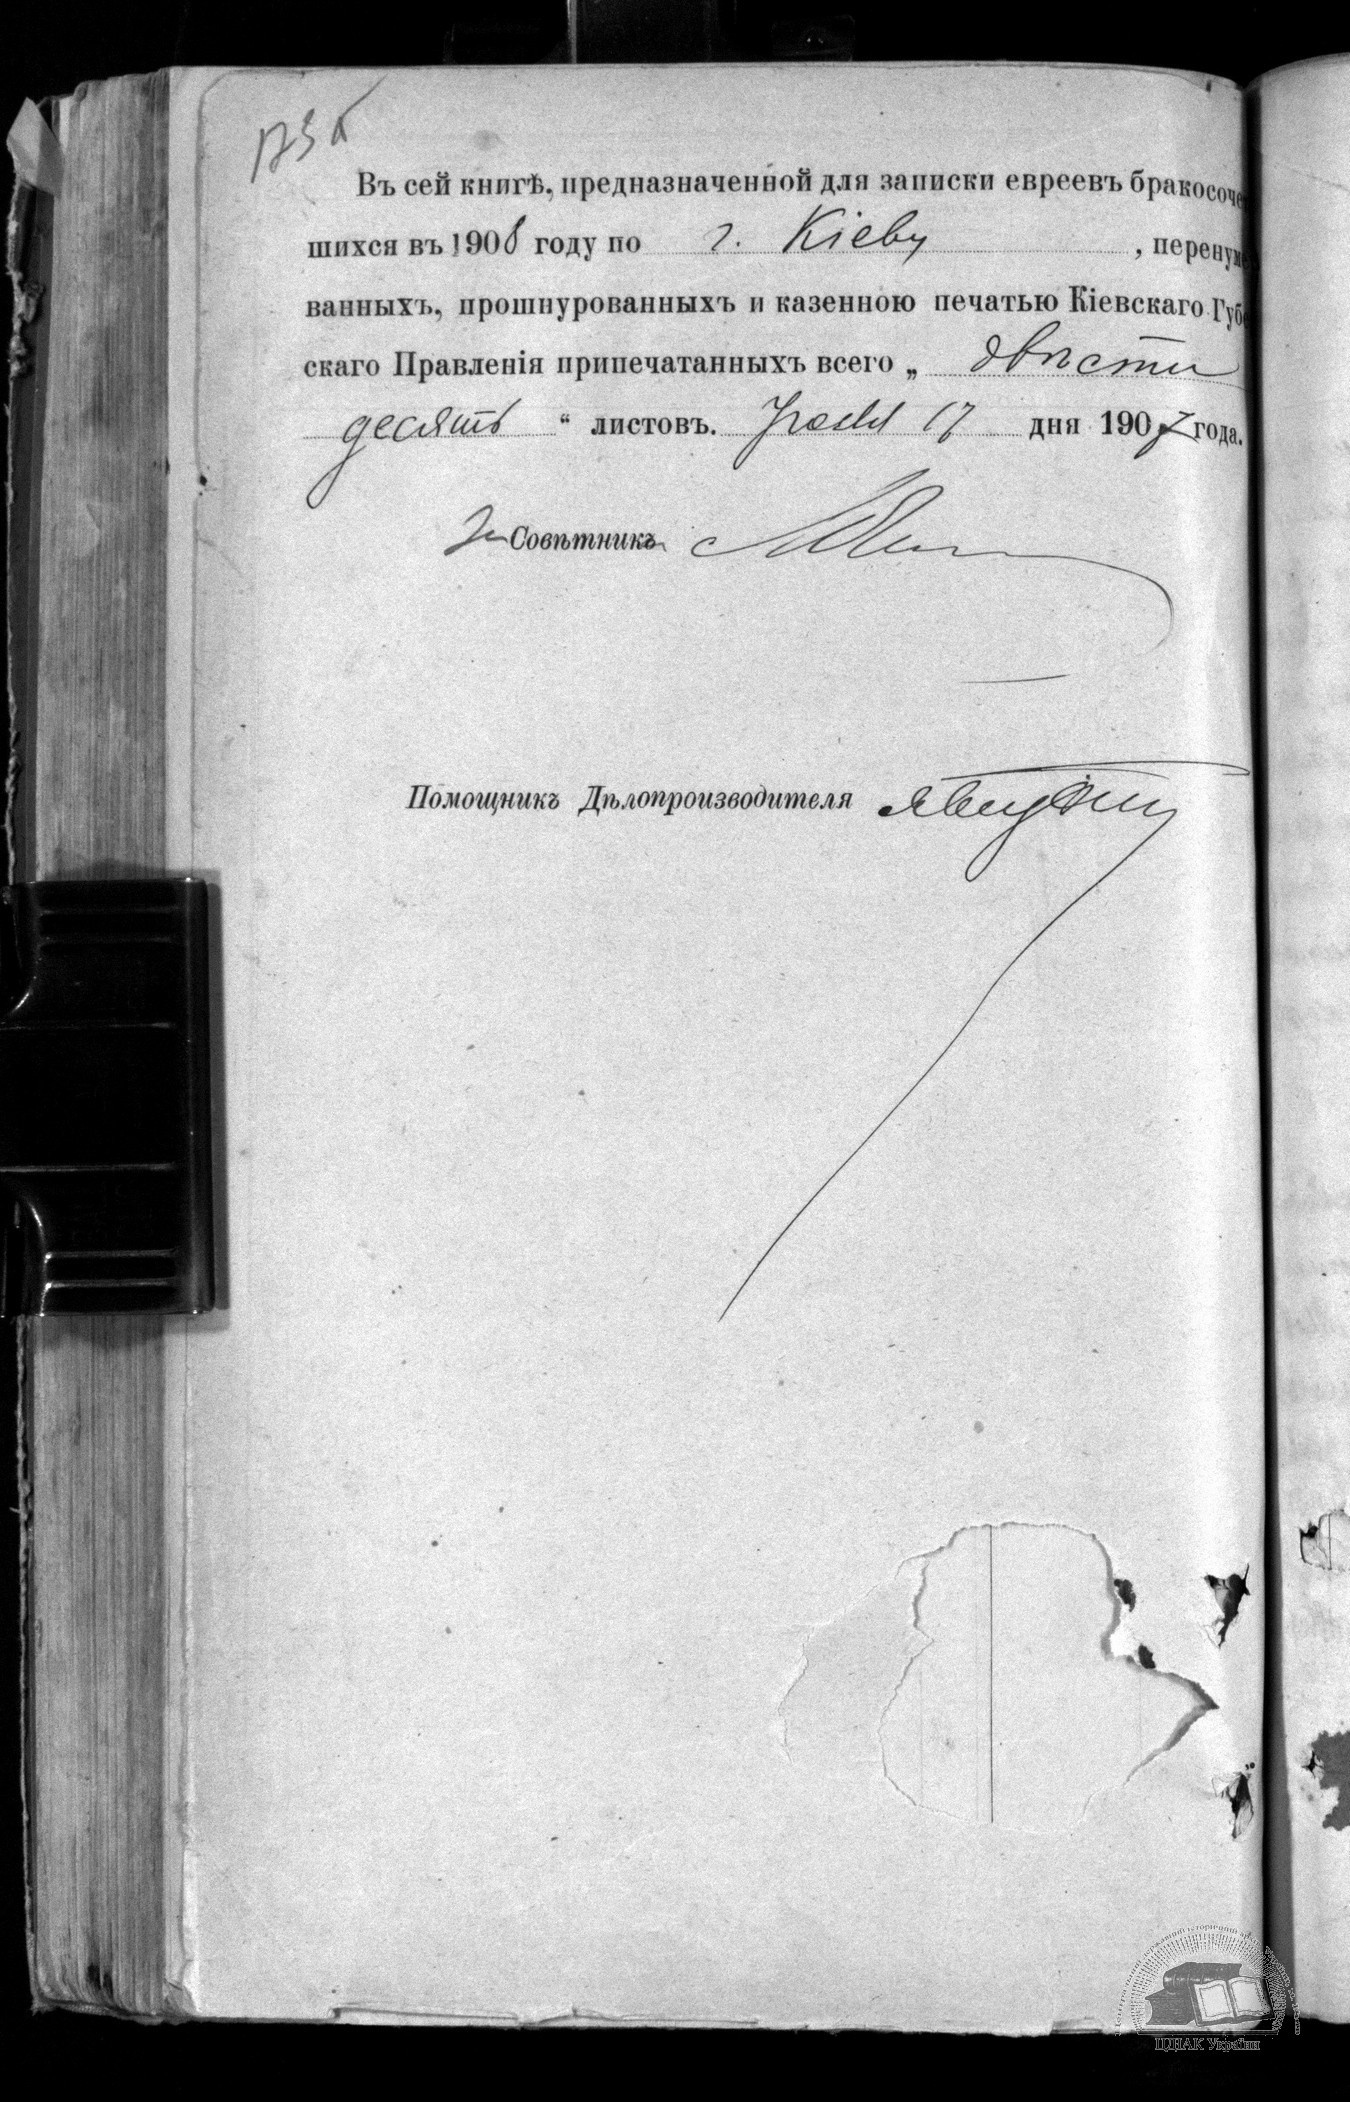 Въ сей книгѣ, предназначенной для записки евреевъ бракосоче
шихся въ 1908 году по г. Кіеву, перенуме
ванныхъ, прошнурованныхъ и казенною печатью Кіевскаго Губе
скаго Правленія припечатанныхъ всего „двѣсти
десять“ листовъ. 17 дня 1907 года.
За Совѣтника
Помощникъ Дѣлопроизводителя
ЦДІАК України